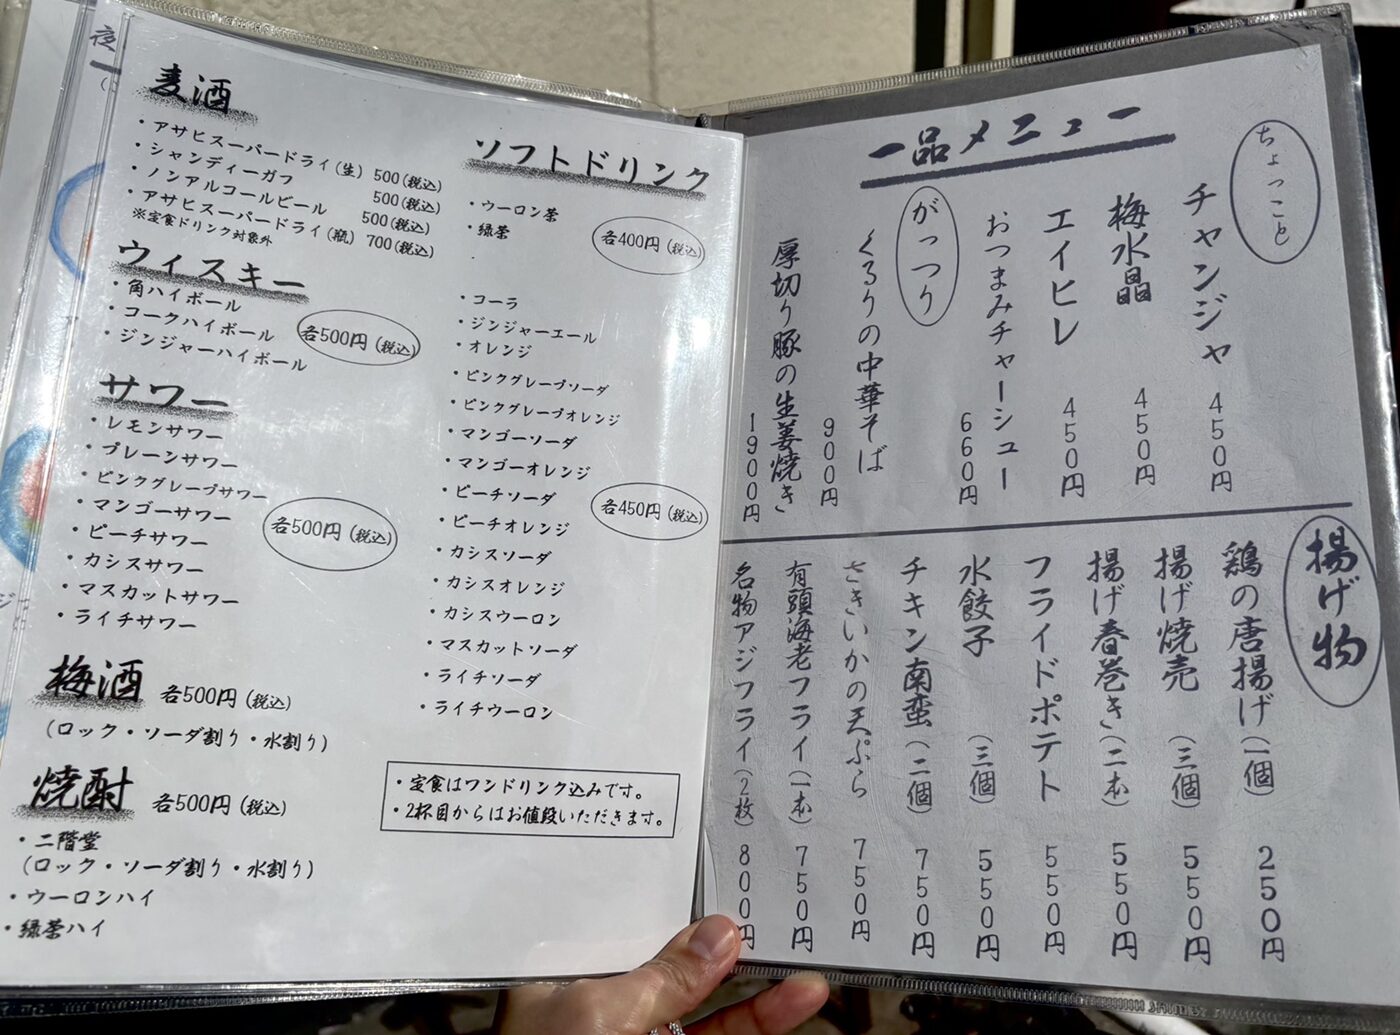 夜
麦酒
・アサヒスーパードライ(生) 500(税込)
・シャンディーガフ 500(税込)
・ノンアルコールビール 500(税込)
・アサヒスーパードライ(瓶) 700(税込)
※定食ドリンク対象外
ウィスキー
・角ハイボール
・コークハイボール
・ジンジャーハイボール
各500円(税込)
サワー
・レモンサワー
・プレーンサワー
・ピンクグレープサワー
・マンゴーサワー
・ピーチサワー
・カシスサワー
・マスカットサワー
・ライチサワー
各500円(税込)
梅酒 各500円(税込)
(ロック・ソーダ割り・水割り)
焼酎 各500円(税込)
・二階堂
(ロック・ソーダ割り・水割り)
・ウーロンハイ
・緑茶ハイ
ソフトドリンク
・ウーロン茶
・緑茶
各400円(税込)
・コーラ
・ジンジャーエール
・オレンジ
・ピンクグレープソーダ
・ピンクグレープオレンジ
・マンゴーソーダ
・マンゴーオレンジ
・ピーチソーダ
・ピーチオレンジ
・カシスソーダ
・カシスオレンジ
・カシスウーロン
・マスカットソーダ
・ライチソーダ
・ライチウーロン
各450円(税込)
・定食はワンドリンク込みです。
・2杯目からはお値段いただきます。
一品メニュー
ちょっこと
チャンジャ 450円
梅水晶 450円
エイヒレ 450円
おつまみチャーシュー 660円
がっつり
くるりの中華そば 900円
厚切り豚の生姜焼き 1900円
揚げ物
鶏の唐揚げ(一個) 250円
揚げ焼売(三個) 550円
揚げ春巻き(二本) 550円
フライドポテト 550円
水餃子(三個) 550円
チキン南蛮(二個) 750円
さきいかの天ぷら 750円
有頭海老フライ(一本) 750円
名物アジフライ(2枚) 800円